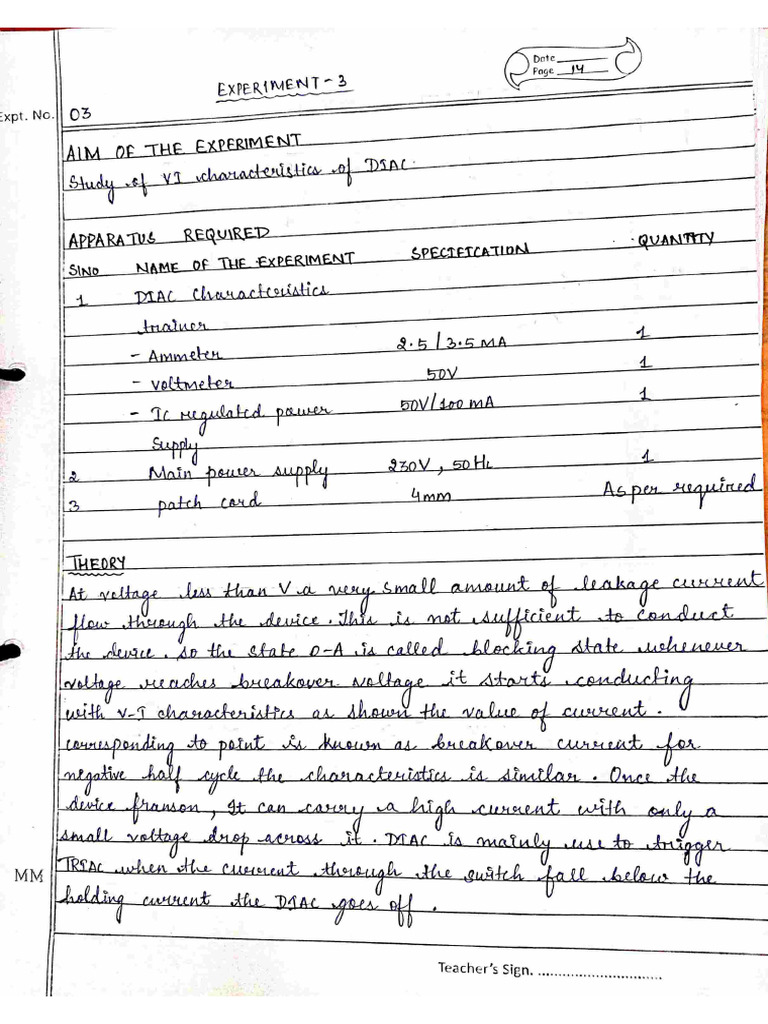 EXPERIMENT-3
Date
Page 14
Expt. No. 03
AIM OF THE EXPERIMENT
Study of VI characteristics of DIAC.
APPARATUS REQUIRED
SlNO NAME OF THE EXPERIMENT SPECIFICATION QUANTITY
1 DIAC Characteristics
trainer
- Ammeter 2.5/3.5 MA 1
- voltmeter 50V 1
- Ic regulated power 50V/100 mA 1
Supply
2 Main power supply 230V, 50 Hz 1
3 patch cord 4mm As per required
THEORY
At voltage less than V a very small amount of leakage current
flow through the device. This is not sufficient to conduct
the device. so the state O-A is called blocking state whenever
voltage reaches breakover voltage it starts conducting
with V-I characteristics as shown the value of current.
corresponding to point is known as breakover current for
negative half cycle the characteristics is similar. Once the
device franson, It can carry a high current with only a
small voltage drop across it. DIAC is mainly use to trigger
TRIAC when the current through the switch fall below the
holding current the DIAC goes off.
MM
Teacher's Sign. ..............................